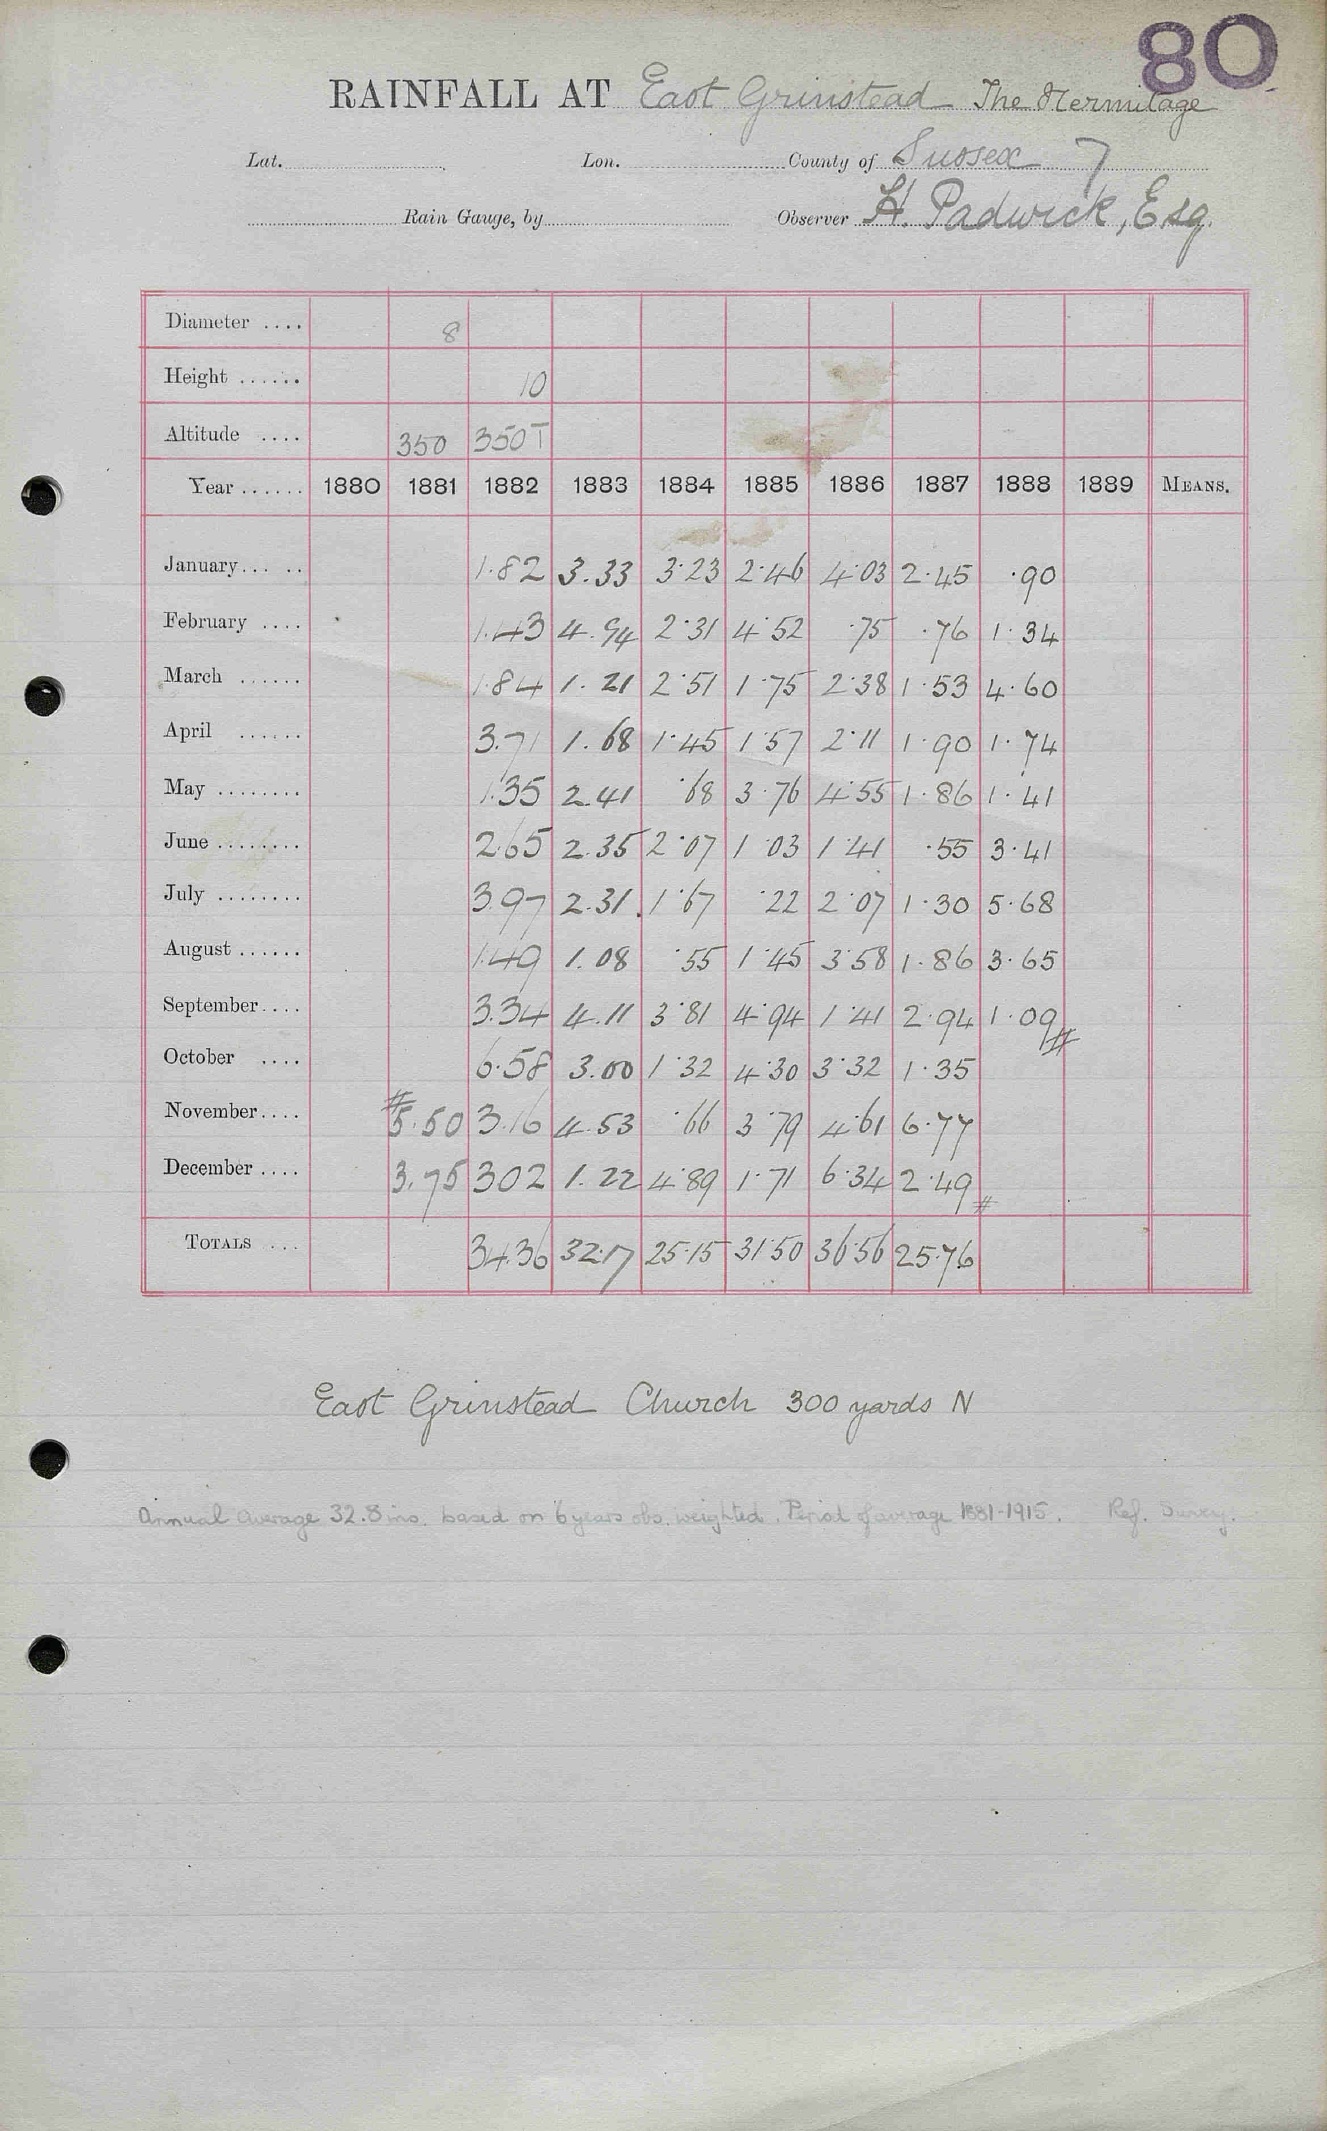 80
RAINFALL AT East Grinstead The Hermitage
Lat. Lon. County of Sussex 7
Rain Gauge, by Observer H. Padwick, Esq.
Diameter .... 8
Height ...... 10
Altitude .... 350 350T
Year ...... 1880 1881 1882 1883 1884 1885 1886 1887 1888 1889 MEANS.
January... .. 1.82 3.33 3.23 2.46 4.03 2.45 .90
February .... 1.43 4.94 2.31 4.52 .75 .76 1.34
March ...... 1.84 1.21 2.51 1.75 2.38 1.53 4.60
April ...... 3.71 1.68 1.45 1.57 2.11 1.90 1.74
May ........ 1.35 2.41 .68 3.76 4.55 1.86 1.41
June ........ 2.65 2.35 2.07 1.03 1.41 .55 3.41
July ........ 3.97 2.31 1.67 .22 2.07 1.30 5.68
August ...... 1.49 1.08 .55 1.45 3.58 1.86 3.65
September.... 3.34 4.11 3.81 4.94 1.41 2.94 1.09 #
October .... 6.58 3.00 1.32 4.30 3.32 1.35
November.... # 5.50 3.16 4.53 .66 3.79 4.61 6.77
December .... 3.75 302 1.22 4.89 1.71 6.34 2.49 #
TOTALS ... 34.36 32.17 25.15 31.50 36.56 25.76
East Grinstead Church 300 yards N
Annual average 32.8 ins. based on 6 years obs. weighted. Period of average 1881-1915. Ref. Survey.